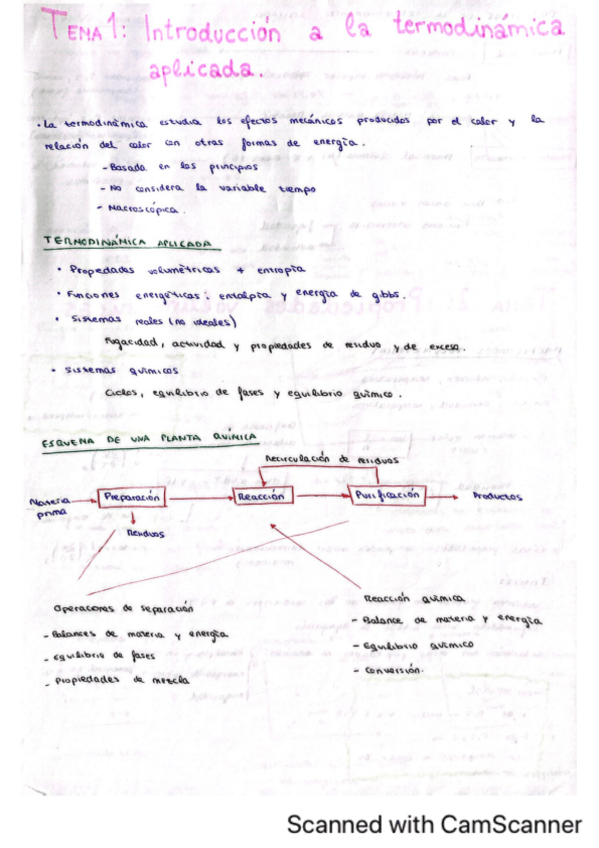 TEMA 1: Introducción a la termodinámica
aplicada.
· La termodinámica estudia los efectos mecánicos producidos por el calor y la
relación del calor con otras formas de energía.
- Basada en los principios
- No considera la variable tiempo
- Macroscópica.
TERMODINÁMICA APLICADA
· Propiedades volumétricas + entropía
· Funciones energéticas: entalpía y energía de gibbs.
· Sistemas reales (no ideales)
Fugacidad, actividad y propiedades de residuo y de exceso.
· Sistemas químicos
Ciclos, equilibrio de fases y equilibrio químico.
ESQUEMA DE UNA PLANTA QUÍMICA
Recirculación de residuos
Materia prima
Preparación
Reacción
Purificación
Productos
Residuos
Operaciones de separación
- Balances de materia y energía
- equilibrio de fases
- propiedades de mezcla
Reacción química
- Balance de materia y energía
- Equilibrio químico
- conversión.
Scanned with CamScanner